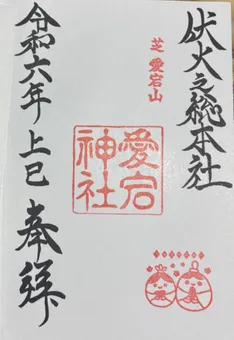 伏火之総本社
芝 愛宕山
愛宕
神社
奉拝
令和六年 上巳